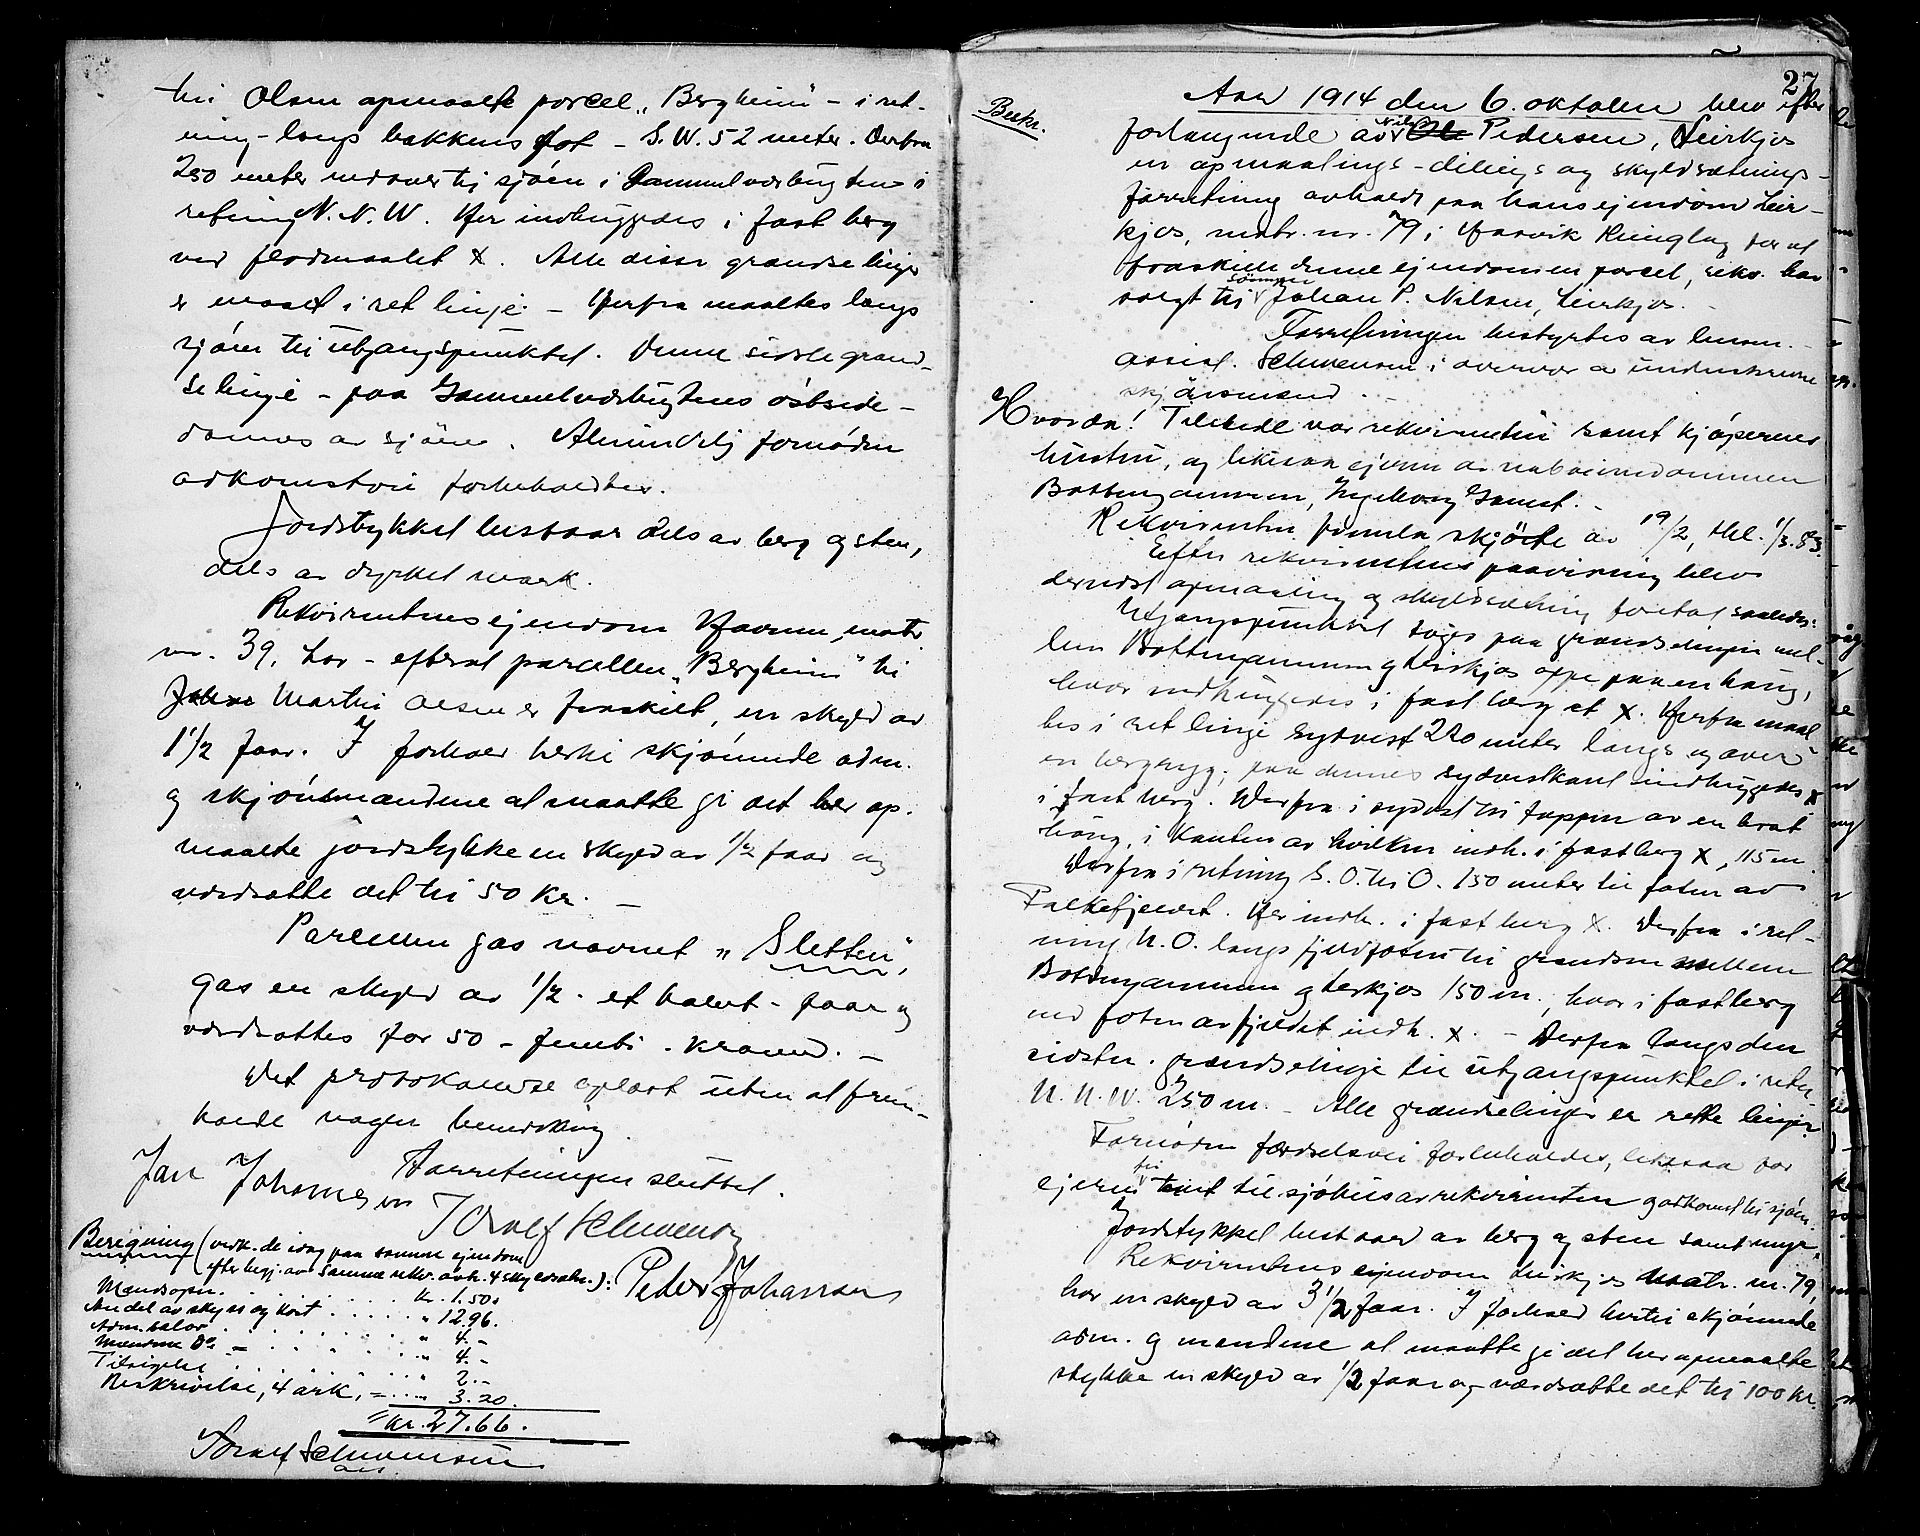 tin Olsen opmaalte parcel „Bergheim" - i ret-
ning - langs bakkens fot - S.W. 52 meter. Derfra
250 meter nedover til sjøen i Gammelværbugten i
retning N.N.W. Her indhuggedes i fast berg
ved flodmaalet X. Alle disse grændselinjer
er maalt i ret linje. - Herfra maaltes langs
sjøen til utgangspunktet. Denne sidste grænd-
selinje - paa Gammelværbugtens østside -
dannes av sjøen. Almindelig fornøden
adkomstvei forbeholdtes.
Jordstykket bestaar dels av berg og sten,
dels av dyrket mark.
Rekvirentens ejendom Havnen, matr.
nr. 39, har - efterat parcellen „Bergheim" til
Martin Olsen er fraskilt, en skyld av
1 1/2 øre. I forhold hertil skjønnede adm.
og skjønsmændene at maatte gi det her op-
maalte jordstykke en skyld av 1/2 øre og
værdsatte det til 50 kr. -
Parcellen gas navnet „Sletten",
gas en skyld av 1/2 - et halvt - øre og
værdsattes for 50 - femti - kroner. -
Det protokollerte oplæst uten at frem-
kalde nogen bemerkning.
Forretningen sluttet.
Jan Johannesen
Torolf Schwensen
Peder Johansen
Beregning (verk. de idag paa samme ejendom
efter begj. av samme rekv. avh. 4 skyldsætn.):
Mandsopn. kr. 1.50
Andel av skyss og kost " 12.96.
Adm. salær " 4.-
Mændene Do. " 4.-
Tilsigelse " 2.-
Beskrivelse, 4 ark, = " 3.20.
kr. 27.66.
Torolf Schwensen
ass.
27
Beskr.
Aar 1914 den 6. oktober blev efter
forlangende av Nils Pedersen, Leirkjos
en opmaalings-delings og skyldsætnings-
forretning avholdt paa hans ejendom Leir-
kjos, matr. nr. 79 i Hasvik tinglag for at
fraskille denne ejendom en parcel, rekv. har
solgt til sønnen Johan P. Nilsen, Leirkjos. -
Forretningen bestyrtes av lensm.
assist. Schwensen i overvær av undertegnede
skjønsmænd. -
Hvorda! Tilstede var rekvirenten samt kjøperens
hustru, og likesaa ejeren av naboeiendommen
Bottengammen, Ingeborg Gamst. -
Rekvirenten fremla skjøte av 19/2, thl. 1/3. 83.
Efter rekvirentens paavisning blev
dernæst opmaaling og skyldsætning foretat saaledes:
Utgangspunktet toges paa grændselinjen mel-
lem Bottengammen og Leirkjos oppe paa en haug,
hvor indhuggedes i fast berg et X. Herfra maal-
tes i ret linje sydvest 220 meter langs og over
en bergrygg; paa dennes sydvestkant indhuggedes X
i fast berg. Derfra i sydost til toppen av en brat
haug, i kanten av hvilken indh. i fast berg X, 115 m.
Derfra i retning S.O. til O. 150 meter til foten av
Falkefjeldet. Her indh. i fast berg X. Derfra i ret-
ning N.O. langs fjeldfoten til grændsen mellem
Bottengammen og Leirkjos 150 m., hvor i fast berg
ved foten av fjeldet indh. X. - Derfra langs den
sidstn. grændselinje til utgangspunktet i retn.
N.N.W. 250 m. - Alle grændselinjer er rette linjer.
Fornøden færdselsvei forbeholdes, likesaa for
ejeren til sjøhus av rekvirenten og adkomst til sjøen.
Jordstykket bestaar av berg og sten samt myr.
Rekvirentens ejendom Leirkjos matr. nr. 79,
har en skyld av 3 1/2 øre. I forhold hertil skjønnede
adm. og mændene at maatte gi det her opmaalte
stykke en skyld av 1/2 øre og værdsætte det til 100 kr.